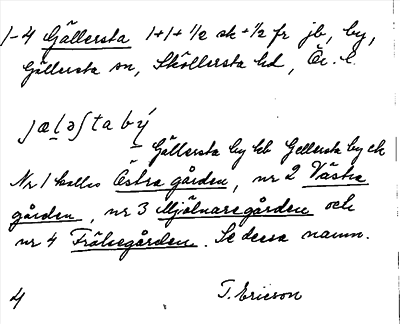 1-4 Gällersta 1+1+½ sk+½ fr jb, by,
Gällersta sn, Sköllersta hd, Ör. l.
jæl̥əʃta bý
Gällersta by kb Gellersta by ek
Nr 1 kallas Östra gården, nr 2 Västra
gården, nr 3 Mjölnaregården och
nr 4 Frälsegården. Se dessa namn.
4 T. Ericson